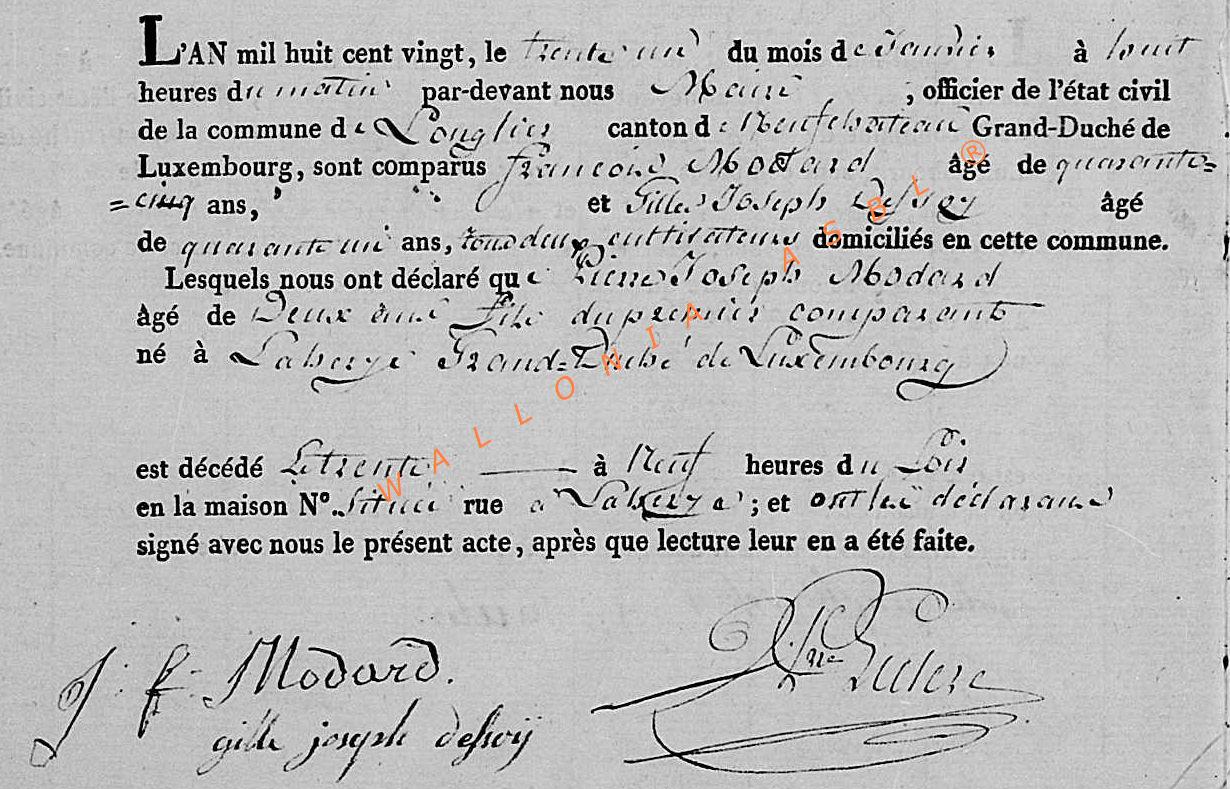 L'AN mil huit cent vingt, le trente un du mois de Janvier à huit
heures du matin par-devant nous Maire , officier de l'état civil
de la commune de Longlier canton de Neufchateau Grand-Duché de
Luxembourg, sont comparus françois Modard âgé de quarante=
=cinq ans, et Gille Joseph Dessoy âgé
de quarante un ans, tous deux cultivateurs domiciliés en cette commune.
Lesquels nous ont déclaré que Pierre Joseph Modard
âgé de Deux ans fils du premier comparant
né à Laherie Grand=Duché de Luxembourg
est décédé Le trente à Neuf heures du Soir
en la maison N.º située rue a Laherie ; et ont les déclarans
signé avec nous le présent acte, après que lecture leur en a été faite.
J. f. Modard.
gille joseph dessoij
Leclere
WALLONIA ASBL ®